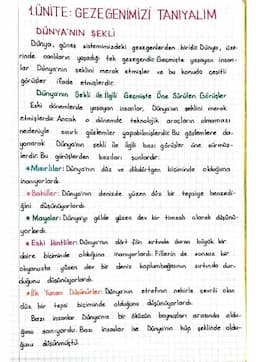 1.ÜNİTE: GEZEGENİMİZİ TANIYALIM
DÜNYA'NIN ŞEKLİ
Dünya, güneş sistemimizdeki gezegenlerden biridir. Dünya, üze-
rinde canlıların yaşadığı tek gezegendir. Geçmişte yaşayan insan-
lar Dünya'nın şeklini merak etmişler ve bu konuda çeşitli
görüşler ifade etmişlerdir.
Dünya'nın Şekli ile İlgili Geçmişte Öne Sürülen Görüşler
Eski dönemlerde yaşayan insanlar, Dünya'nın şeklini merak
etmişlerdir. Ancak o dönemde teknolojik araçların olmaması
nedeniyle sınırlı gözlemler yapabilmişlerdir. Bu gözlemlere da-
yanarak Dünya'nın şekli ile ilgili bazı görüşler öne sürmüş-
lerdir. Bu görüşlerden bazıları şunlardır:
• Mısırlılar: Dünya'nın düz ve dikdörtgen biçiminde olduğuna
inanıyorlardı.
• Babiller: Dünya'nın denizde yüzen düz bir tepsiye benzedi-
ğini düşünüyorlardı.
• Mayalar: Dünyayı gölde yüzen dev bir timsah olarak düşünü-
yorlardı.
• Eski Hintliler: Dünya'nın dört filin sırtında duran büyük bir
daire biçiminde olduğuna inanıyorlardı. Fillerin de sonsuz bir
okyanusta yüzen dev bir deniz kaplumbağasının sırtında dur-
duğunu düşünüyorlardı.
• İlk Yunan Düşünürler: Dünya'nın etrafının nehirle çevrili olan
düz bir tepsi biçiminde olduğunu düşünüyorlardı.
Bazı insanlar Dünya'nın bir öküzün boynuzları arasında oldu-
ğunu sanıyordu. Bazı insanlar ise Dünya'nın küp şeklinde oldu-
ğunu düşünmüştü.